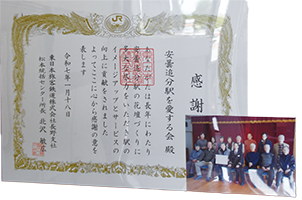 JR
感謝
安曇追分駅を愛する会 殿
あなたがたは長年にわたり
安曇追分駅の花壇づくりに
多大な尽力をいただき駅の
イメージアップとサービスの
向上に貢献をされました
よってここに心から感謝の意を
表します
令和七年一月十八日
東日本旅客鉄道株式会社長野支社
松本統括センター所長 北沢